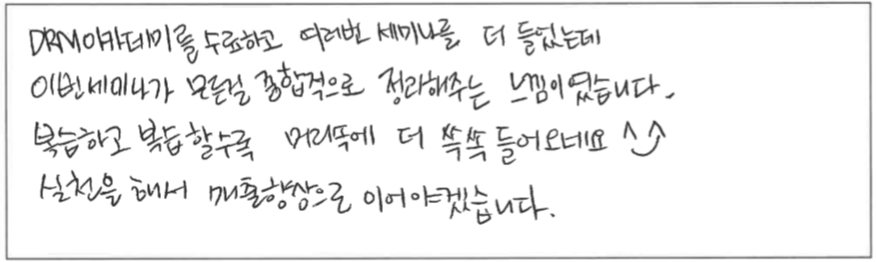 DRM아카데미를 수료하고 여러번 세미나를 더 들었는데
이번세미나가 모든걸 종합적으로 정리해주는 느낌이였습니다.
복습하고 복습할수록 머리속에 더 쏙쏙 들어오네요 ^^
실천을 해서 매출향상으로 이어야겠습니다.